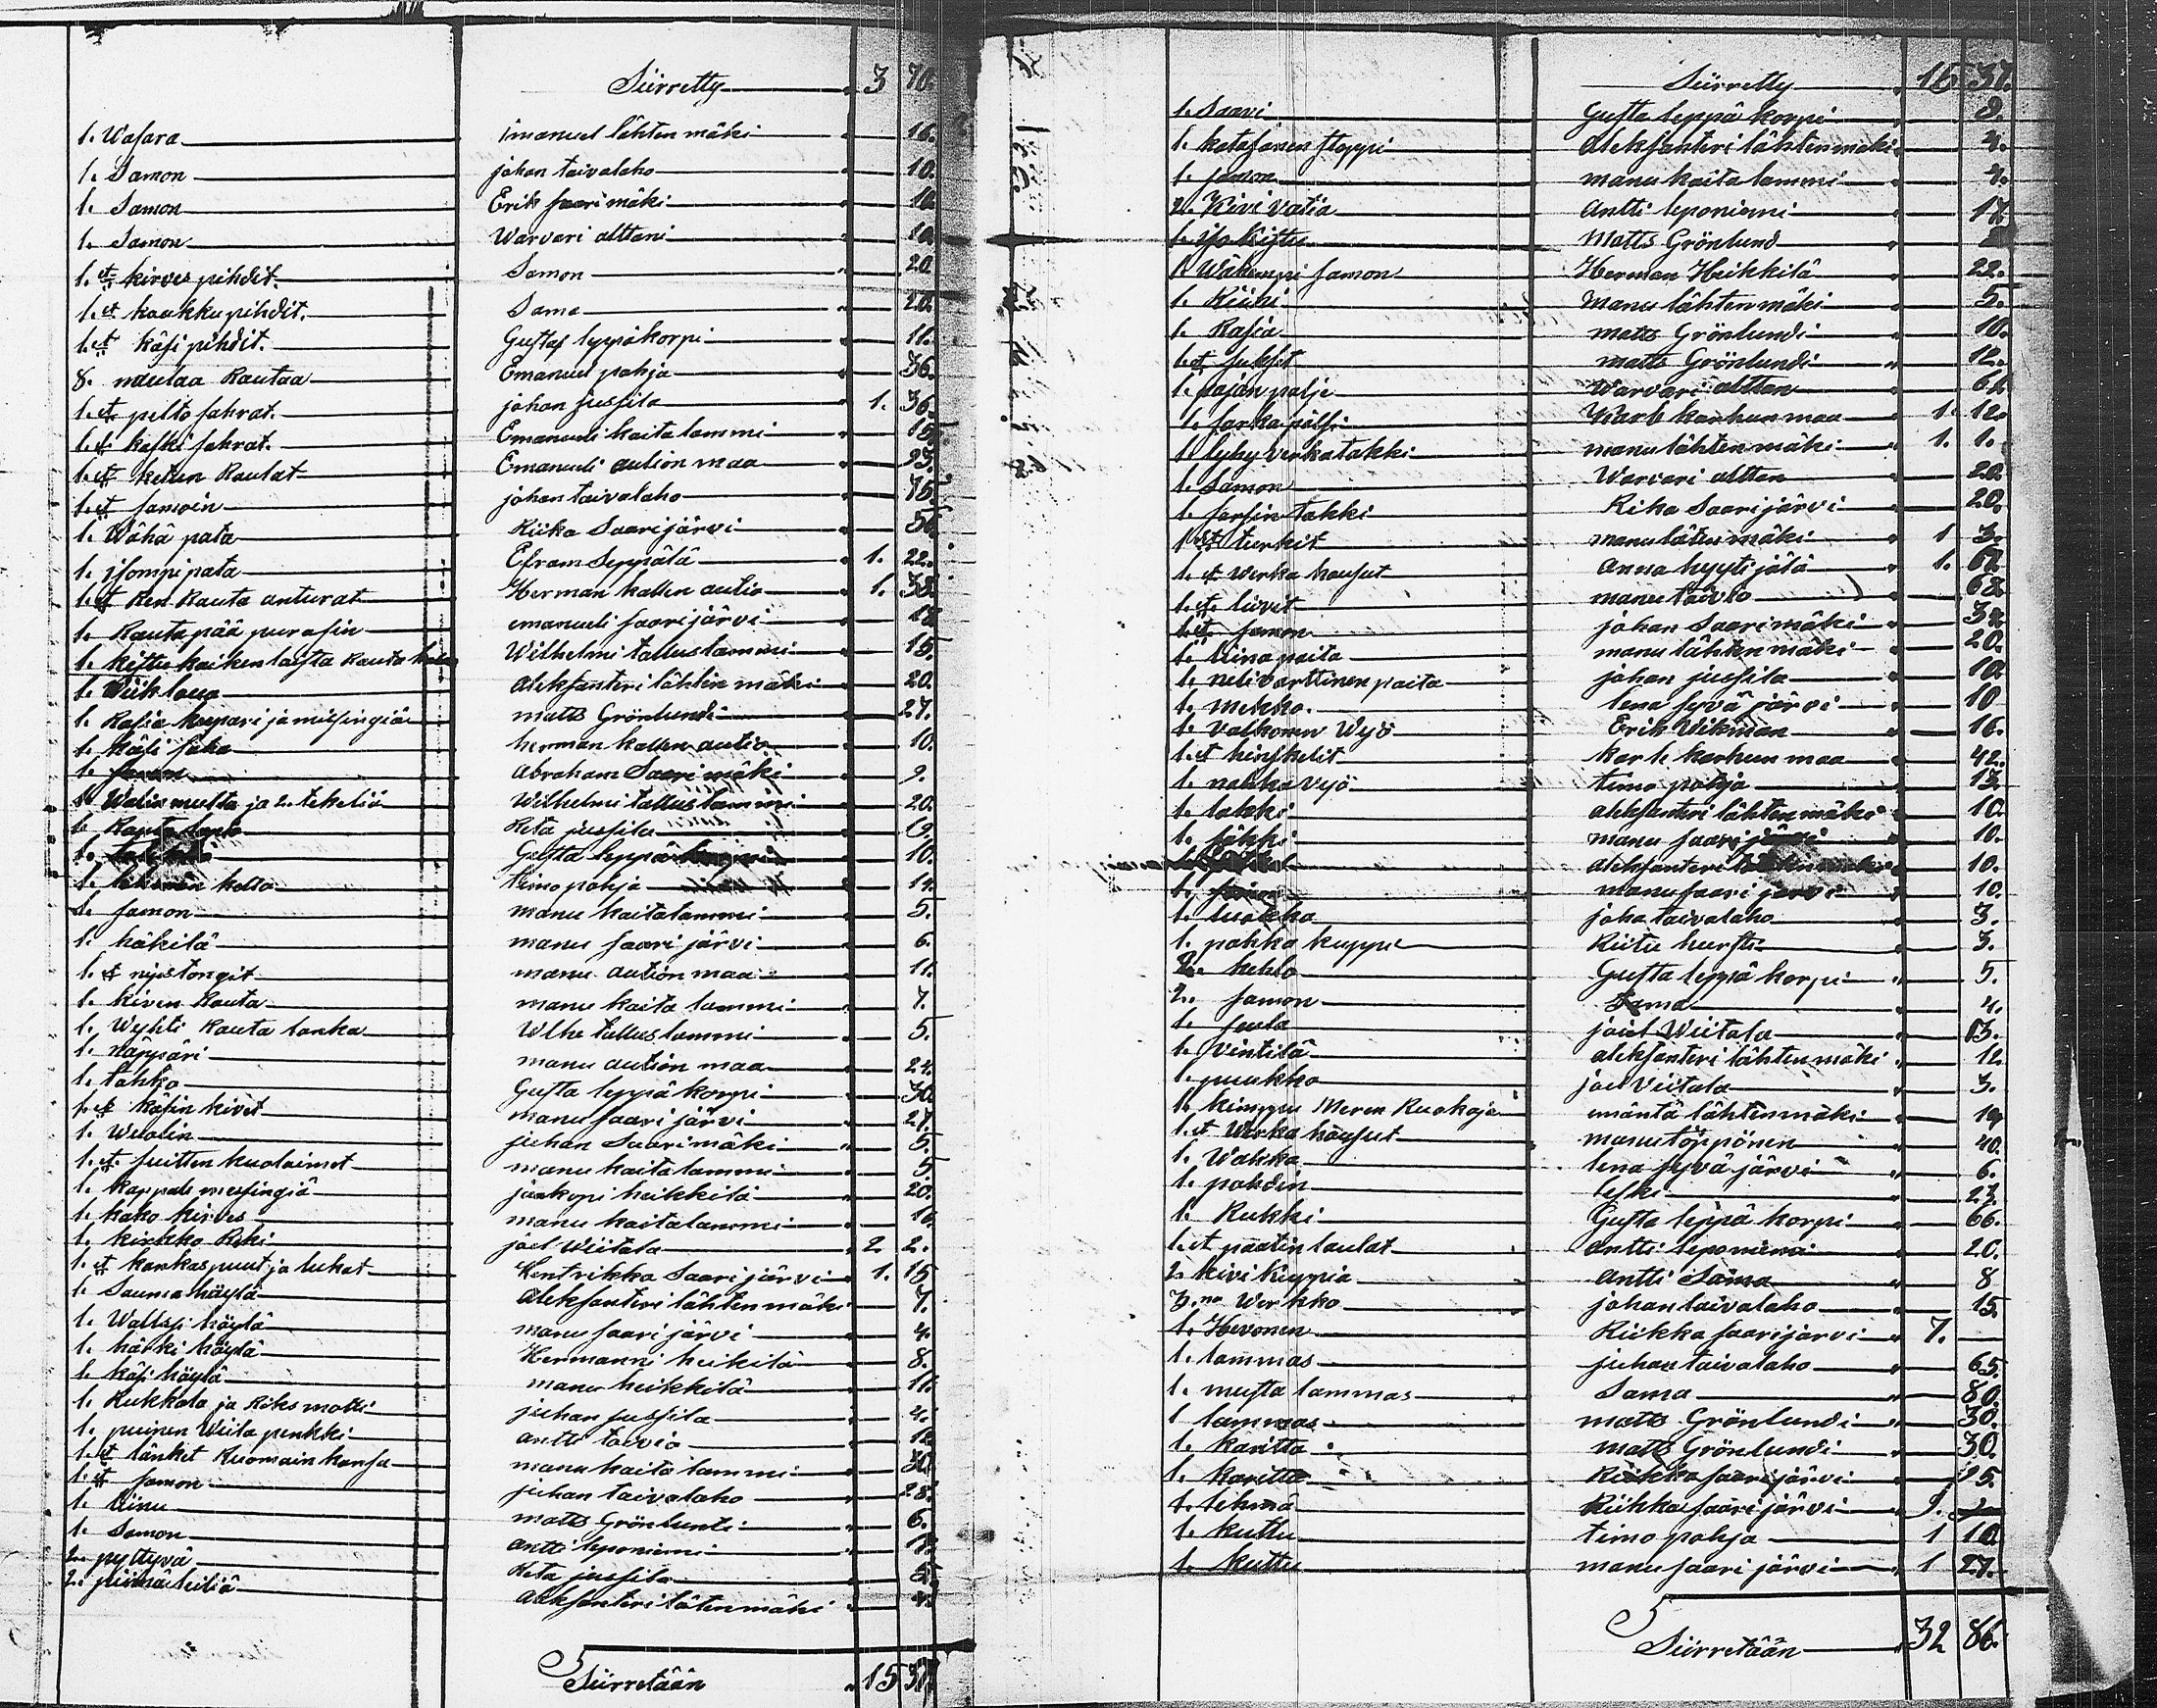 Siirretty 3 70.
1. Wasara imanuel lähten mäki 16.
1. Samon johan taivalaho 10.
1. Samon Erik saari mäki 10.
1. Samon Warvari alttoni 10.
1. et kirves pihdit. Samon 20
1. et koukku pihdit. Sama 20.
1. et käsi pihdit. Gustaf leppäkorpi 11.
8. naulaa Rautaa Emanuel pohja 36.
1. et pelto sahrat. johan jussila 1. 36.
1. et keski sahrat. Emanueli kaita lammi 15.
1. et ketun Raulat Emanueli aution maa 23.
1. et samoin johan taivalaho 75.
1. Wähä pata Riika Saarijärvi 56.
1. isompi pata Efram Seppälä 1. 22.
1. et Ren Rauta anturat Herman kallen autio 1. 38.
1. Rauta pää purasin emanueli saarijärvi 18
1. kittu kaiken laista Rauta Wilhelmi talluslammi 15.
1. Aleksanteri lähtin mäki 20.
1. Rasia kupari ja misingiä matts Grönlundi 27.
1. käsi saha herman kallen autio 10.
1. Abraham Saari mäki 9.
1. Walin multa ja 2. tekeliä Wilhelmi tallus lammi 20.
1. Reta jussila 19.
1. Gusta leppä 10.
1. kello timo pohja 14.
1. samon manu kaitalammi 5.
1. häkilä manu saari järvi 6.
1. et manu aution maa 11.
1. kiven Rauta manu kaita lammi 7.
1. Wyhti Rauta lanka Wlhe tallus lammi 5.
1. näppäri manu aution maa 24.
1. tahko Gusta leppä korpi 30.
1. et käsin kivet manu saari järvi 27.
1. Wuolin juhan Saarimäki 5.
1. et suitten kuolaimet manu kaita lammi 5.
1. kappale messingiä jaakopi heikkilä 20.
1. kako kirves manu kaitalammi 16
1. kirkko Reki joel Wiitala 2 2.
1. et kankaspuut ja luhat Hentrikka Saari järvi 1. 15
1. Sauma höylä Aleksanteri lähten mäki 7.
1. Waltapi höylä manu saari järvi 4.
1. härki höylä Hermanni heikilä 8.
1. käsi höylä manu heikkilä 11.
1. Rukkala ja Riks motti juhan jussila 4.
1. puinen Wiila penkki antti taivio 12
1. et länket Ruomain kansa manu kaita lammi 30.
1. et samon juhan taivalaho 28.
1. tiinu matts Grönlunti 6.
1. Samon antti leponiemi 17.
2. pyttyvä Reta jussila 5.
2. piimä tiiliä Aleksanteri lätenmäki 4.
Siirretään 15 37.
Siirretty 15 37.
1. Saavi Gusta leppä korpi 9.
1. katajanen stoppi Aleksanteri lähtenmäki 4.
1. samon manu kaita lammi 4.
2. Kivi vatia Antti leponiemi 17.
1. iso kistu Matts Grönlund
1. Wähempi samon Herman Heikkilä 22.
1. Kiini Manu lähten mäki 5.
1. Rasia matts Grönlundi 10.
1. et sukset matts Grönlundi 12.
1. pajan palje Warvari altten 61.
1. sarka pälsi Karle karhun maa 1. 12.
1. lyhy verkatakki manu lähten mäki 1. 1.
1. Samon Warvari altten 20.
1. sarsin takki Rika Saarijärvi 20.
1. et turkit manu läten mäki 1 3.
1. et verka housut Anna hyytijälä 1. 62
1. et liivit manu taivio 68.
1. et samon johan Saarimäki 32
1. liina paita manu lähten mäki 20.
1. nelivarttinen paita johan jussila 10.
1. mekko. lena syvä järvi 10
1. valkonen Wyö Erik Wikman 16.
1. et hinskelit karle karhun maa 42.
1. nahka vyö timo pohja 13.
1. lakki aleksanteri lähten mäki 10.
1. säkki manu saari järvi 10.
aleksanteri 10.
1. manu saari järvi 10.
1. luokka joha taivalaho 3.
1. pahka kuppi Riitu hursti 3.
2. kehlo Gusta leppä korpi 5.
2. samon Sama 4.
1. joel Wiitala 13.
1. Vintilä aleksanteri lähtenmäki 12
1. puukko joel Viitala 3.
1. kimppu Meren Ruokoja emäntä lähtenmäki 19
1. et Werka housut manu töppönen 40.
1. Wakka lena syvä järvi 6.
1. pohdin leski 27.
1. Rukki Gusta leppä korpi 66.
1. et paatin laulat antti leponiemi 20.
2. kivi kuppia Antti Sama 8
3. na Werkko johan taivalaho 15.
1. Hevonen Riikka saarijärvi 7.
1. lammas juhan taivalaho 65.
1. musta lammas Sama 80.
1 lammas matts Grönlundi 30.
1. karitta matts Grönlundi 30.
1. karitta Riikka saarijärvi 25.
1. lehmä Riikka saari järvi 9.
1. kuttu timo pohja 1 10.
1. kuttu manu saari järvi 1 27.
Siirretään 32 86.